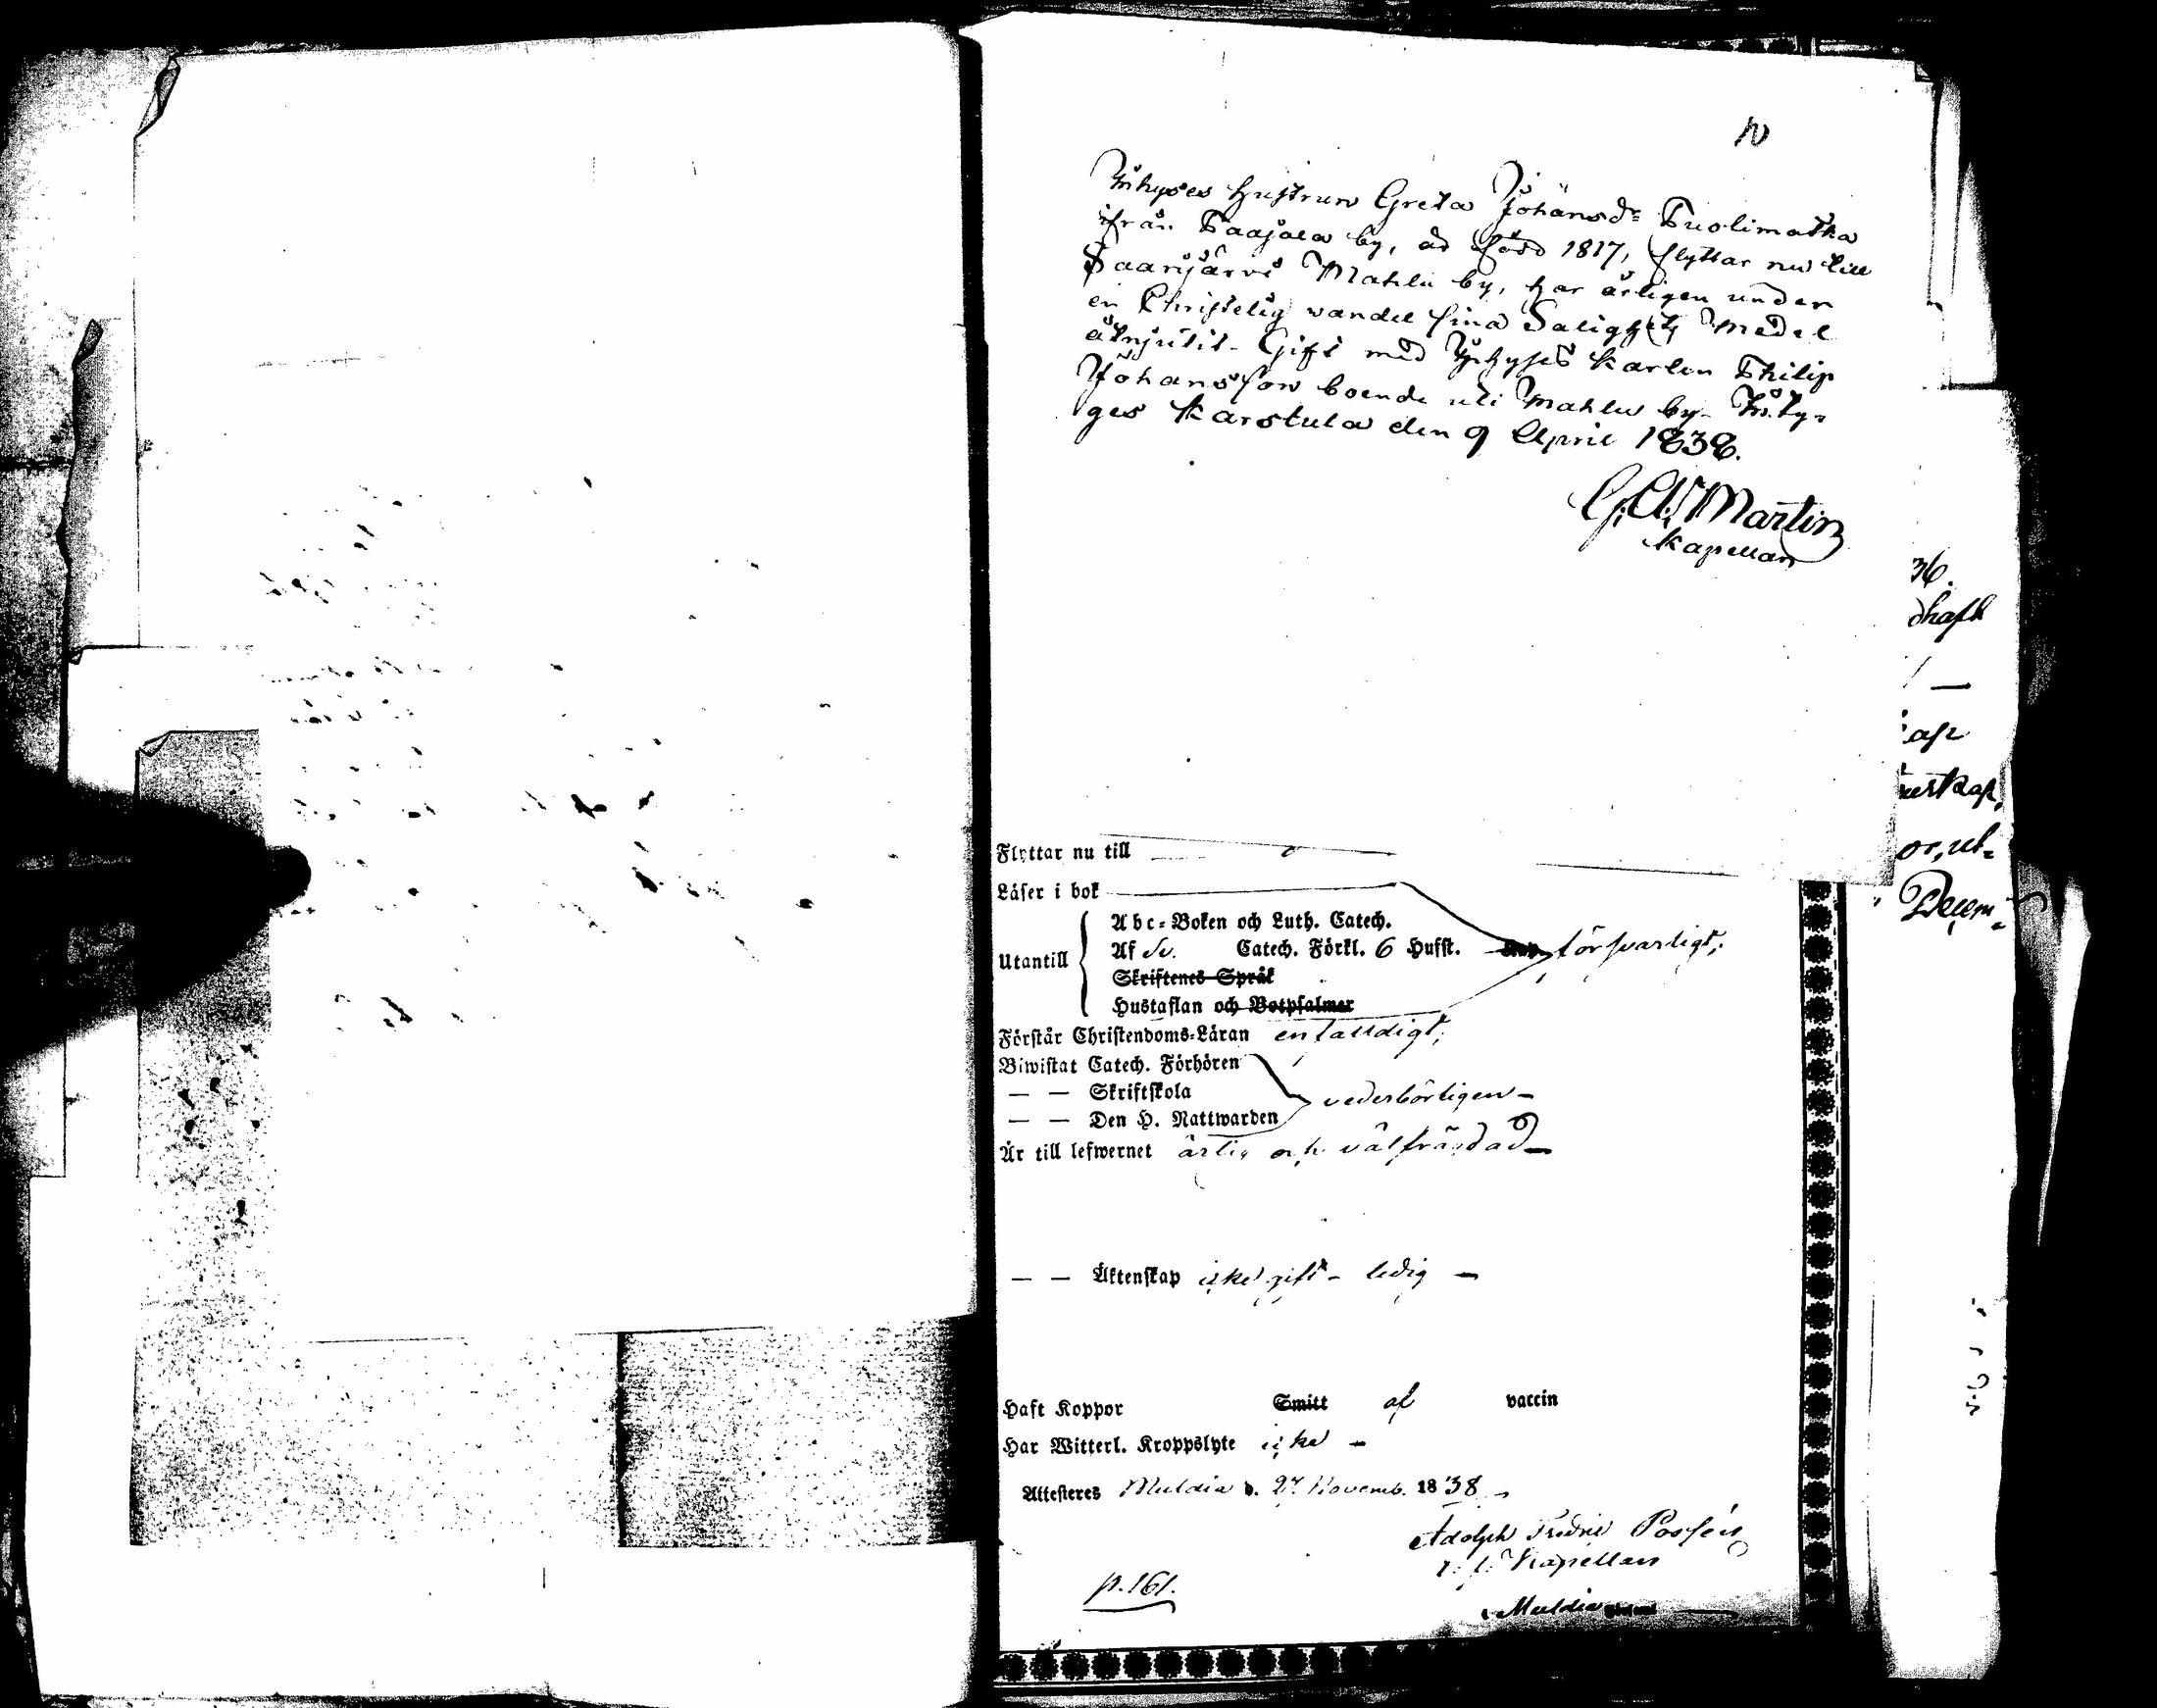 10
Inhyses Hustrun Greta Johansdr Tuolimatka
ifrån Paajala by, är född 1817, flyttar nu till
Saarijärvi Mahlu by, har årligen under
en Christelig vandel sina Salighets Medel
åtnjutit. Gift med Inhyses Karlen Philip
Johansson boende uti Mahlu by. In¬ty=
ges Karstula den 9 April 1838.
G. A. Martin
Kapellan
36.
dhaft
ap
nerskap,
or, ut=
Decem=
Flyttar nu till
Läser i bok
Abc-Boken och Luth. Catech.
Utantill Af Sv. Catech. Förkl. 6 Hufst. försvarligt;
Skriftenes Språk
Hustaflan och Botpsalmer
Förstår Christendoms-Läran enfalldigt;
Biwistat Catech. Förhören
— — Skriftskola vederbörligen –
— — Den H. Nattwarden
Är till lefwernet ärlig och välfrägdad –
— — Äktenskap icke gift – ledig –
Haft Koppor Smitt af vaccin
Har Witterl. Kroppslyte icke –
Attesteres Muldia d. 27 Novemb. 1838 –
Adolph Fredric Possén
Kapellan
Muldia
p. 161.